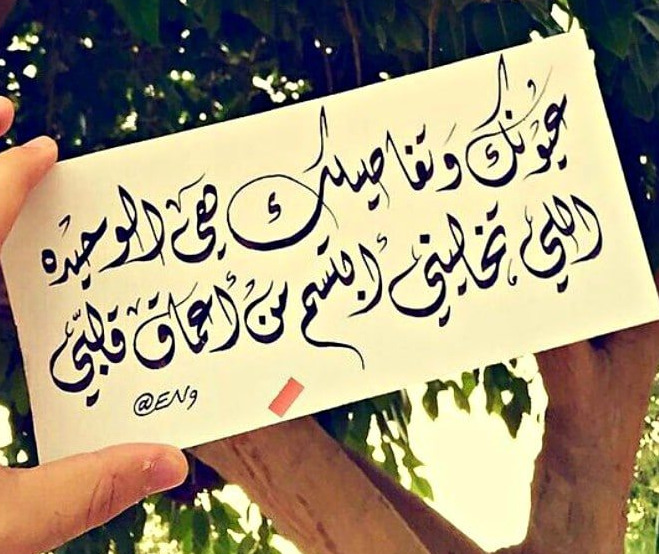 عيونك وتفاصيلك هي الوحيده
اللي تخليني أبتسم من أعماق قلبي
@ENg